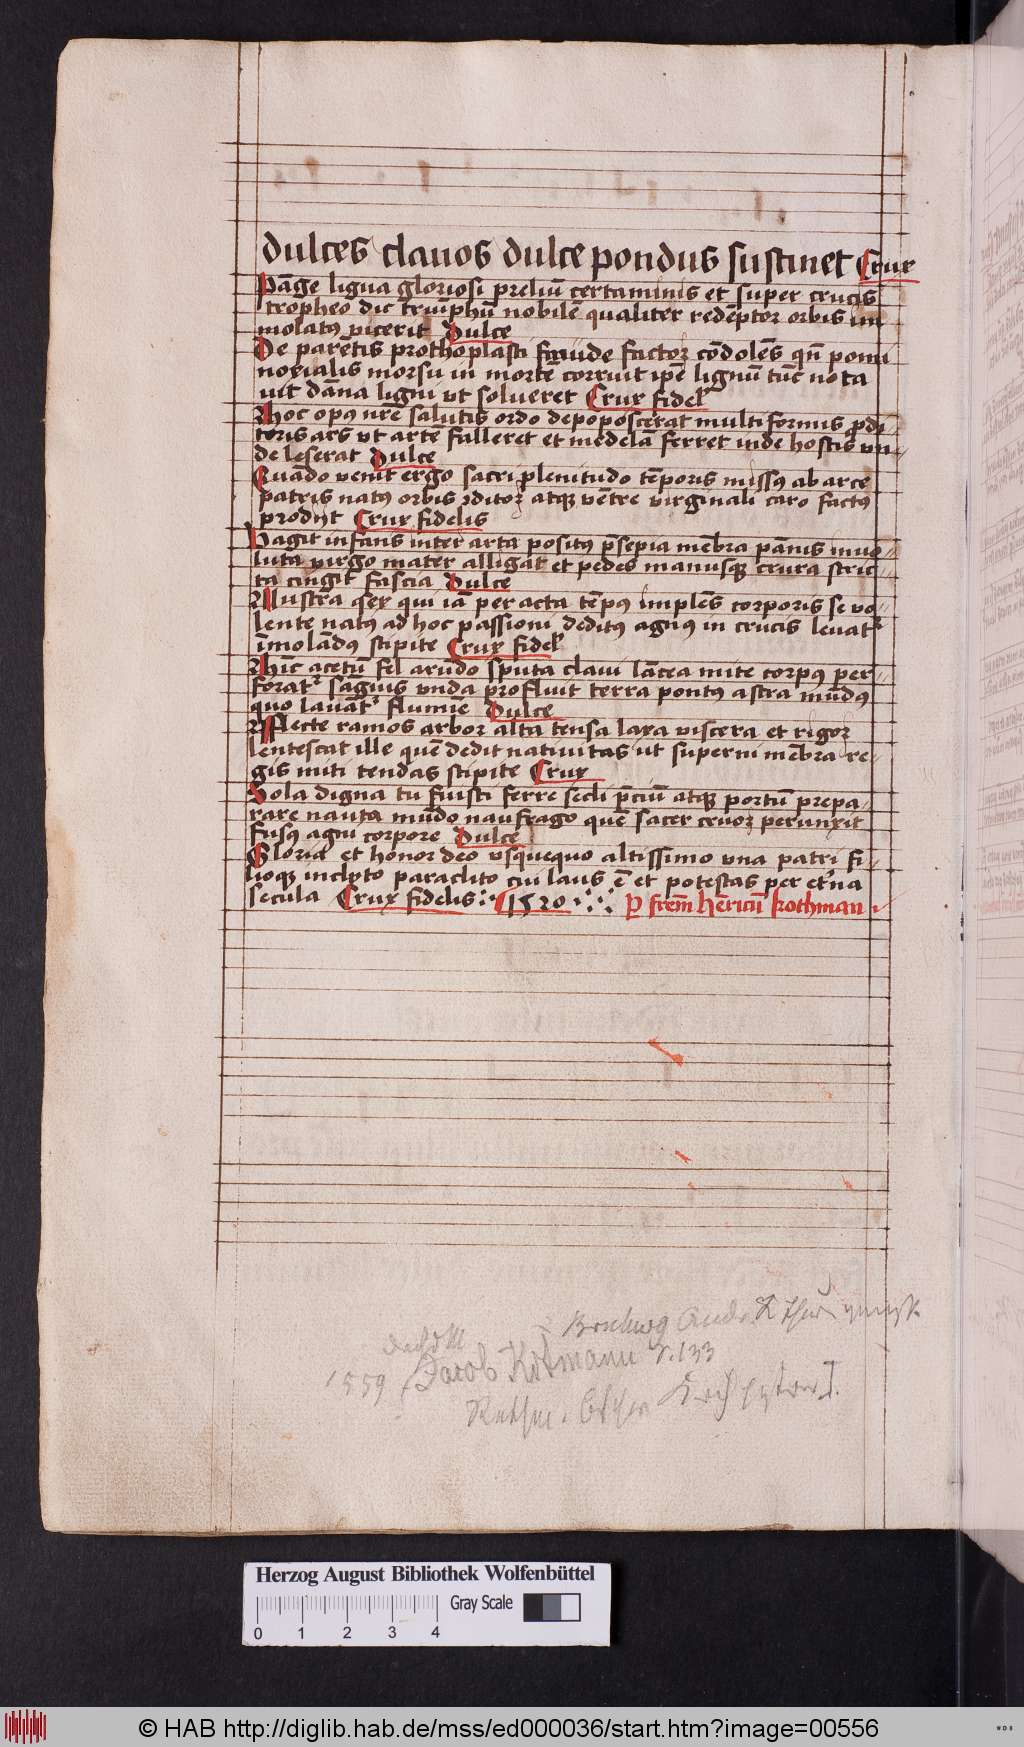 dulces clauos dulce pondus sustinet Crux
Pāge ligua gloriosi preliū certaminis et super crucis
tropheo dic triūphū nobilē qualiter redēptor orbis im
molatꝰ vicerit Dulce
De parētis prothoplasti fraude factor cōdolēs qn̄ pomi
noxialis morsu in mortē corruit ipē lignū tūc nota
uit dāna ligni vt solueret Crux fidel
Hoc opꝰ nr̄e salutis ordo depoposcerat multiformis ꝓdi-
toris ars vt arte falleret et medelā ferret inde hostis vn-
de leserat Dulce
Quādo venit ergo sacri plenitudo tēporis missꝰ ab arce
patris natꝰ orbis ꝯditor atqꝫ vētre virginali caro factꝰ
prodijt Crux fidelis
Uagit infans inter arta positꝰ p̄sepia mēbra pānis inuo-
luta virgo mater alligat et pedes manusqꝫ crura stric-
ta cingit fascia Dulce
Lustra sex qui iā per acta tēpꝰ implēs corporis se vo-
lente natꝰ ad hoc passioni deditꝰ agnꝰ in crucis leuat᷑
īmolādꝰ stipite Crux fidel
Hic acetū fel arūdo sputa claui lācea mite corpꝰ per-
forat᷑ sāguis vnda profluit terra pontꝰ astra mūdꝰ
quo lauāt᷑ flumīe Dulce
Flecte ramos arbor alta tensa laxa viscera et rigor
lentescat ille quē dedit natiuitas ut superni mēbra re-
gis miti tendas stipite Crux
Sola digna tu fuisti ferre secli p̄ciū atqꝫ portū prepa-
rare nauta mūdo naufrago quē sacer cruor perunxit
fusꝰ agni corpore Dulce
Gloria et honor deo vsquequo altissimo vna patri fi-
lioqꝫ inclyto paraclito cui laus ē et potestas per et᷑na
secula Crux fidelis 1520 ꝑ frem̄ hēricū kothman
1559 Jacob Kotmann v. 133
Herzog August Bibliothek Wolfenbüttel
Gray Scale
0 1 2 3 4
© HAB http://diglib.hab.de/mss/ed000036/start.htm?image=00556